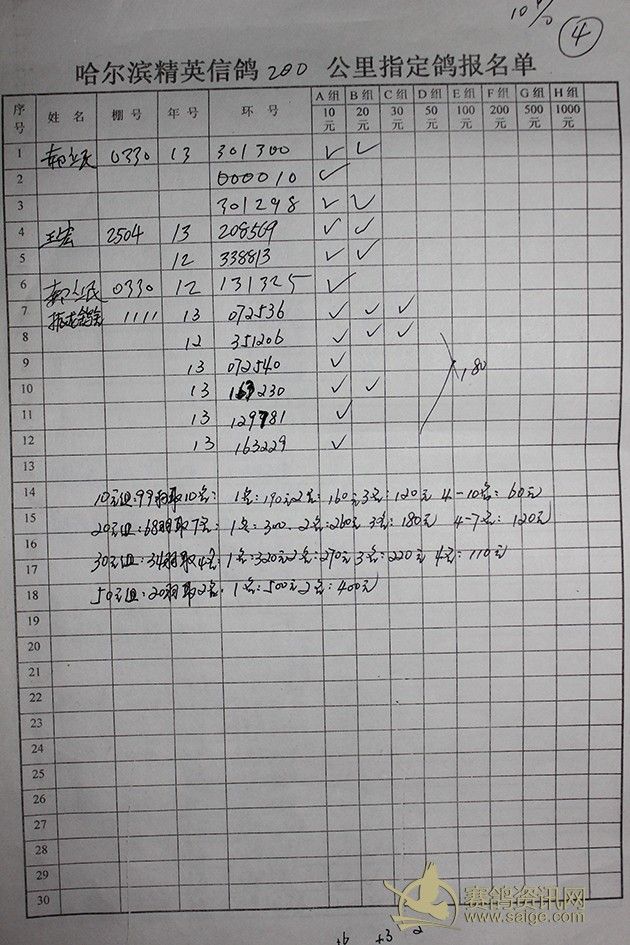 10%
④
哈尔滨精英信鸽 200 公里指定鸽报名单
序号 姓名 棚号 年号 环号 A组 B组 C组 D组 E组 F组 G组 H组
10元 20元 30元 50元 100元 200元 500元 1000元
1 0330 13 301300 ✓ ✓
2 000010 ✓
3 301298 ✓ ✓
4 王宏 2504 13 208569 ✓ ✓
5 12 338813 ✓ ✓
6 0330 12 131325 ✓
7 1111 13 072536 ✓ ✓ ✓
8 12 351206 ✓ ✓ ✓
9 13 072540 ✓
10 13 163230 ✓ ✓
11 13 129781 ✓
12 13 163229 ✓
180
13
14 10元组:99羽取10名: 1名:190元2名:160元3名:120元 4-10名:60元
15 20元组:68羽取7名: 1名:300 2名:260元 3名:180元 4-7名:120元
16
17 30元组:34羽取4名:1名:320元2名:270元3名:220元 4名:110元
18 50元组:20羽取2名:1名:500元2名:400元
19
20
21
22
23
24
25
26
27
28
29
30
赛鸽资讯网
www.saige.com